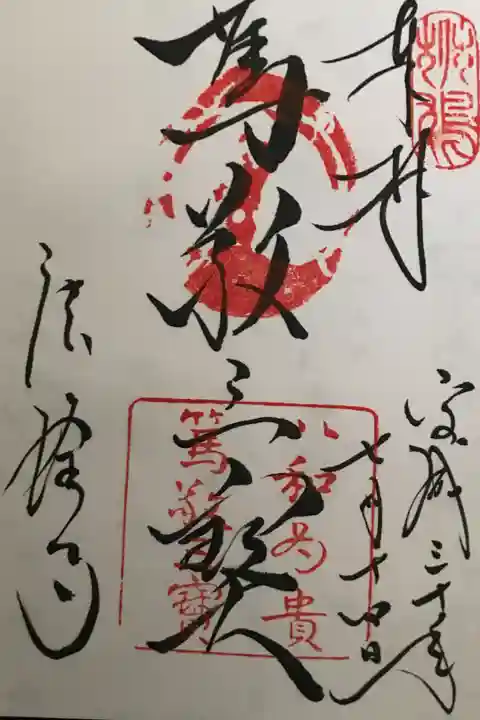 奉拝
平成三十年
七月十四日
篤敬三寶
法隆寺
以和為貴
篤敬三寶